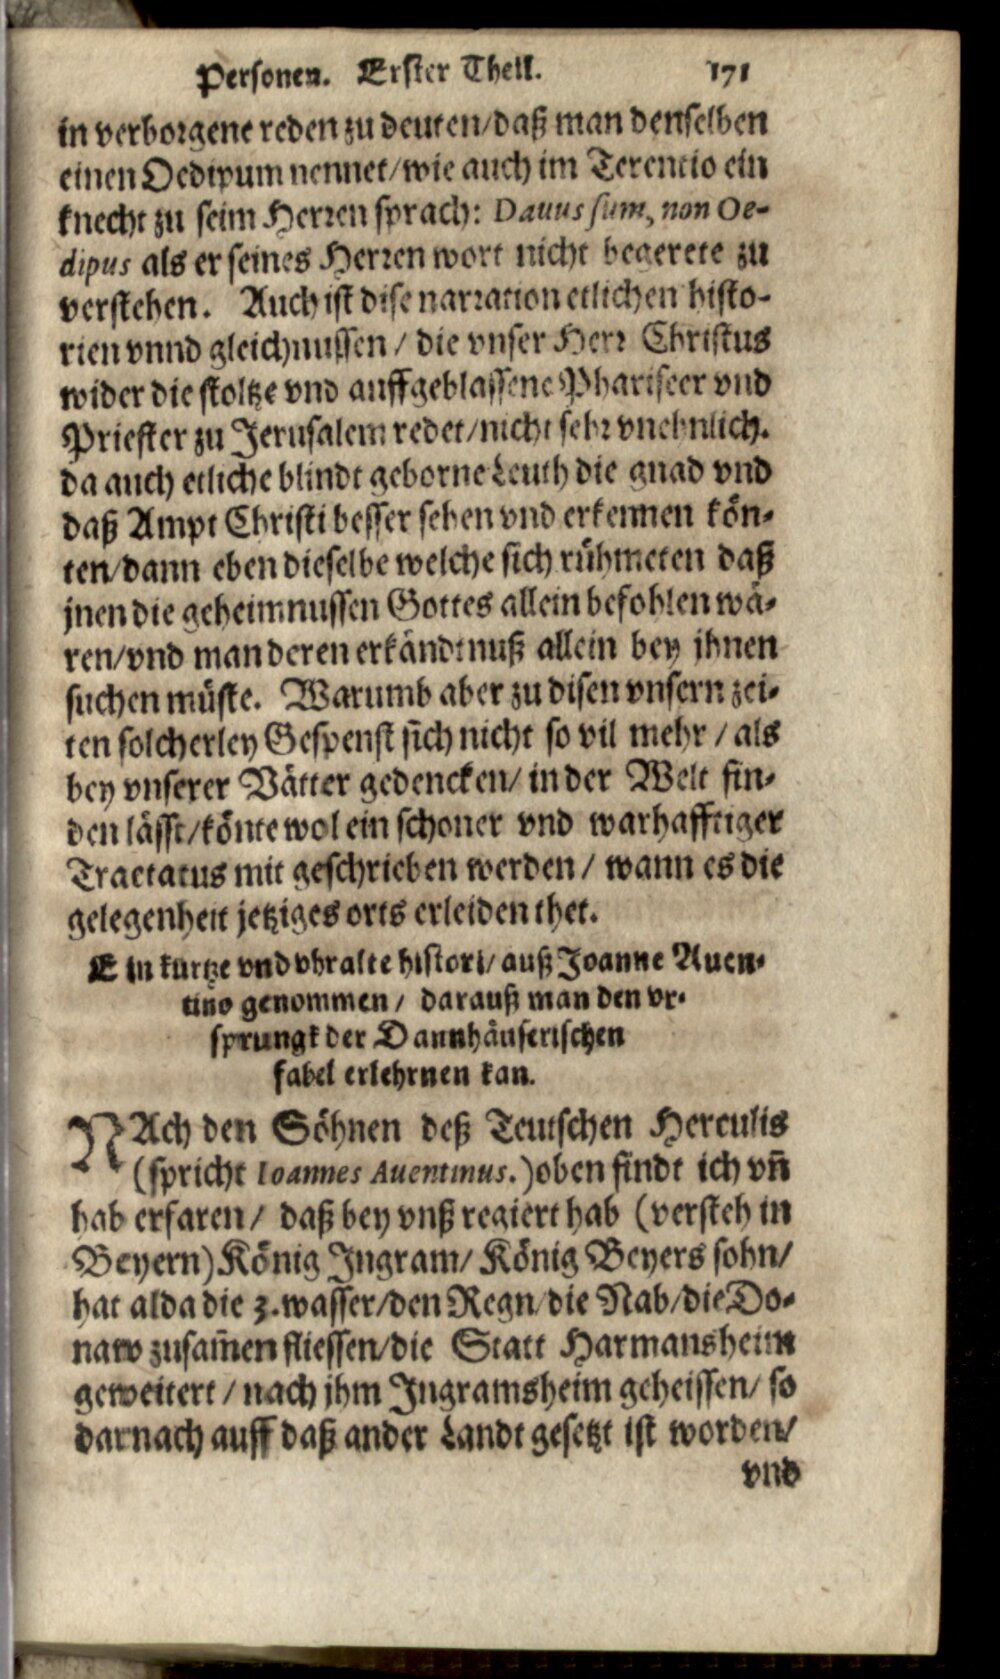 Personen. Erster Theil. 171
in verborgene reden zu deuten/daß man denselben
einen Oedipum nennet/wie auch im Terentio ein
knecht zu seim Herren sprach: Davus sum, non Oe-
dipus als er seines Herren wort nicht begerete zu
verstehen. Auch ist dise narration etlichen histo-
rien vnnd gleichnussen / die vnser Herr Christus
wider die stoltze vnd auffgeblassene Phariseer vnd
Priester zu Jerusalem redet/nicht sehr vnehnlich.
da auch etliche blindt geborne Leuth die gnad vnd
daß Ampt Christi besser sehen vnd erkennen kön-
ten/dann eben dieselbe welche sich rühmeten daß
jnen die geheimnussen Gottes allein befohlen wä-
ren/vnd man deren erkändtnuß allein bey jhnen
suchen müste. Warumb aber zu disen vnsern zei-
ten solcherley Gespenst sich nicht so vil mehr / als
bey vnserer Vätter gedencken/ in der Welt fin-
den lässt/könte wol ein schoner vnd warhafftiger
Tractatus mit geschrieben werden / wann es die
gelegenheit jetziges orts erleiden thet.
Ein kurtze vnd vhralte histori/ auß Joanne Auen-
tino genommen / darauß man den vr-
sprungk der Dannhäuserischen
fabel erlehrnen kan.
NAch den Söhnen deß Teutschen Herculis
(spricht Ioannes Auentinus.) oben findt ich vn̄
hab erfaren / daß bey vnß regiert hab (versteh in
Beyern) König Ingram/ König Beyers sohn/
hat alda die 3. wasser/den Regn/die Nab/die Do-
naw zusam̄en fliessen/die Statt Harmansheim
geweitert / nach jhm Ingramsheim geheissen/ so
darnach auff daß ander Landt gesetzt ist worden/
vnd